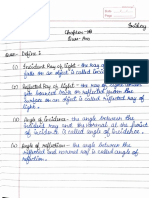 Friday
Chapter-16
Ques-Ans
Ques- Define :
(1) Incident Ray of Light - the Ray of light
on an object is called incident
(2) Reflected Ray of Light - the Ray of light
bounced back or reflected from the
surface or an object is called reflected ray
of light.
(3) Angle of Incidence - the angle between the
incident ray and the normal at the point
of incidence is called angle of incidence.
(4) Angle of reflection - the angle between the
reflected and normal ray is called angle of
reflection.